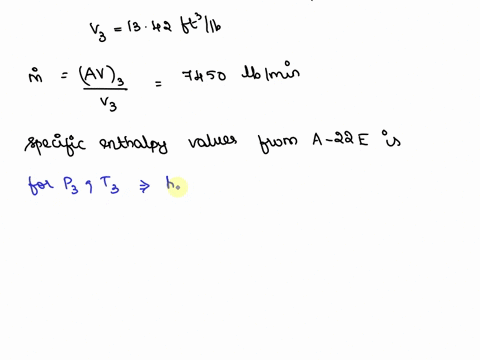 v₃ = 13.42 ft³/lb
ṁ = (AV)₃ / v₃ = 7450 lb/min
specific enthalpy values from A-22E is
for P₃, T₃ ⇒ h